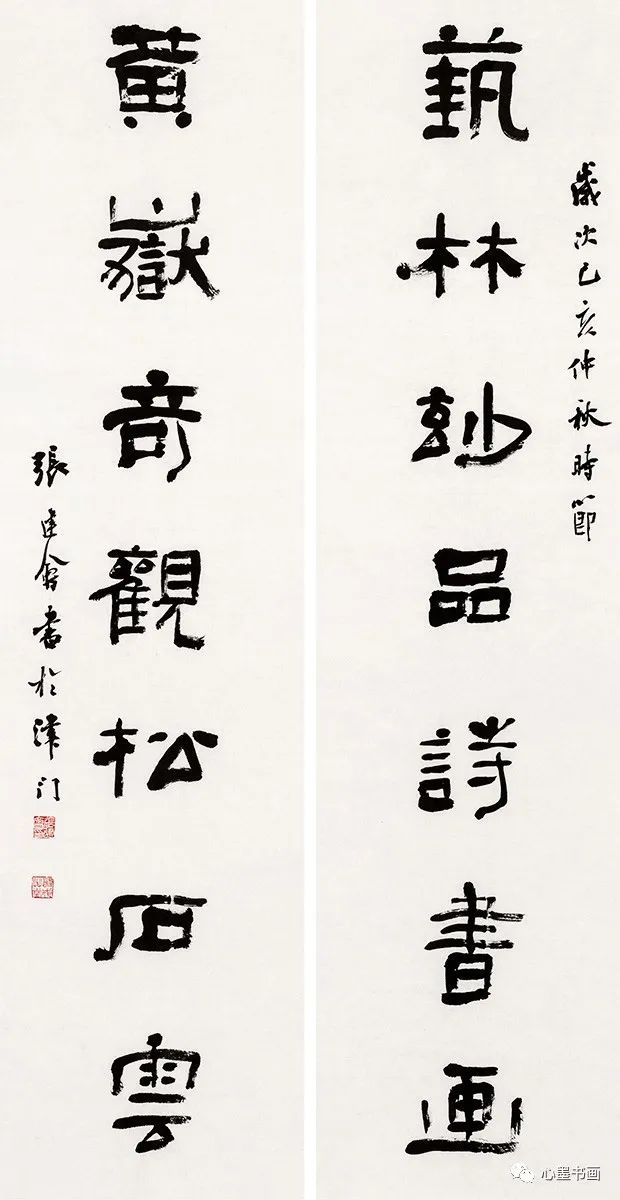 藝林妙品詩書画
歲次己亥仲秋時節
黃嶽奇觀松石雲
張建會書於津门
心墨书画